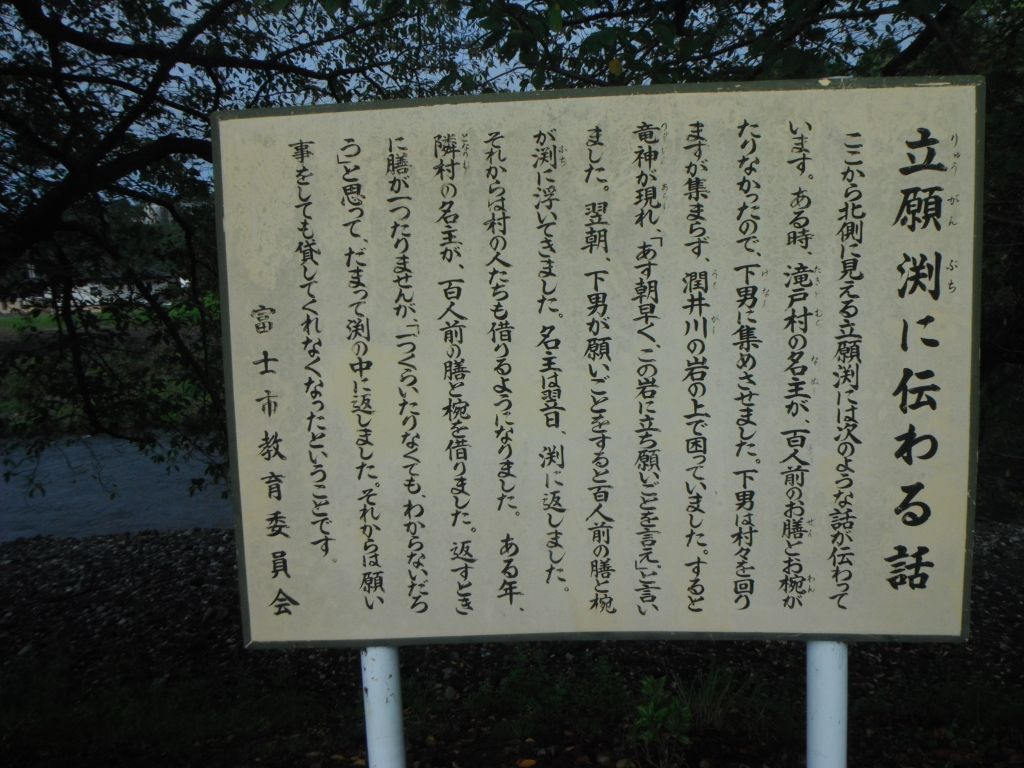 立願渕に伝わる話
ここから北側に見える立願渕には次のような話が伝わって
います。ある時、滝戸村の名主が、百人前のお膳とお椀が
たりなかったので、下男に集めさせました。下男は村々を回り
ますが集まらず、潤井川の岩の上で困っていました。すると
竜神が現れ、「あす朝早く、この岩に立ち願いごとを言え」と言い
ました。翌朝、下男が願いごとをすると百人前の膳と椀
が渕に浮いてきました。名主は翌日、渕に返しました。
それからは村の人たちも借りるようになりました。ある年、
隣村の名主が、百人前の膳と椀を借りました。返すとき
に膳が一つたりませんが、「一つくらいたりなくても、わからないだろ
う」と思って、だまって渕の中に返しました。それからは願い
事をしても貸してくれなくなったということです。
富士市教育委員会